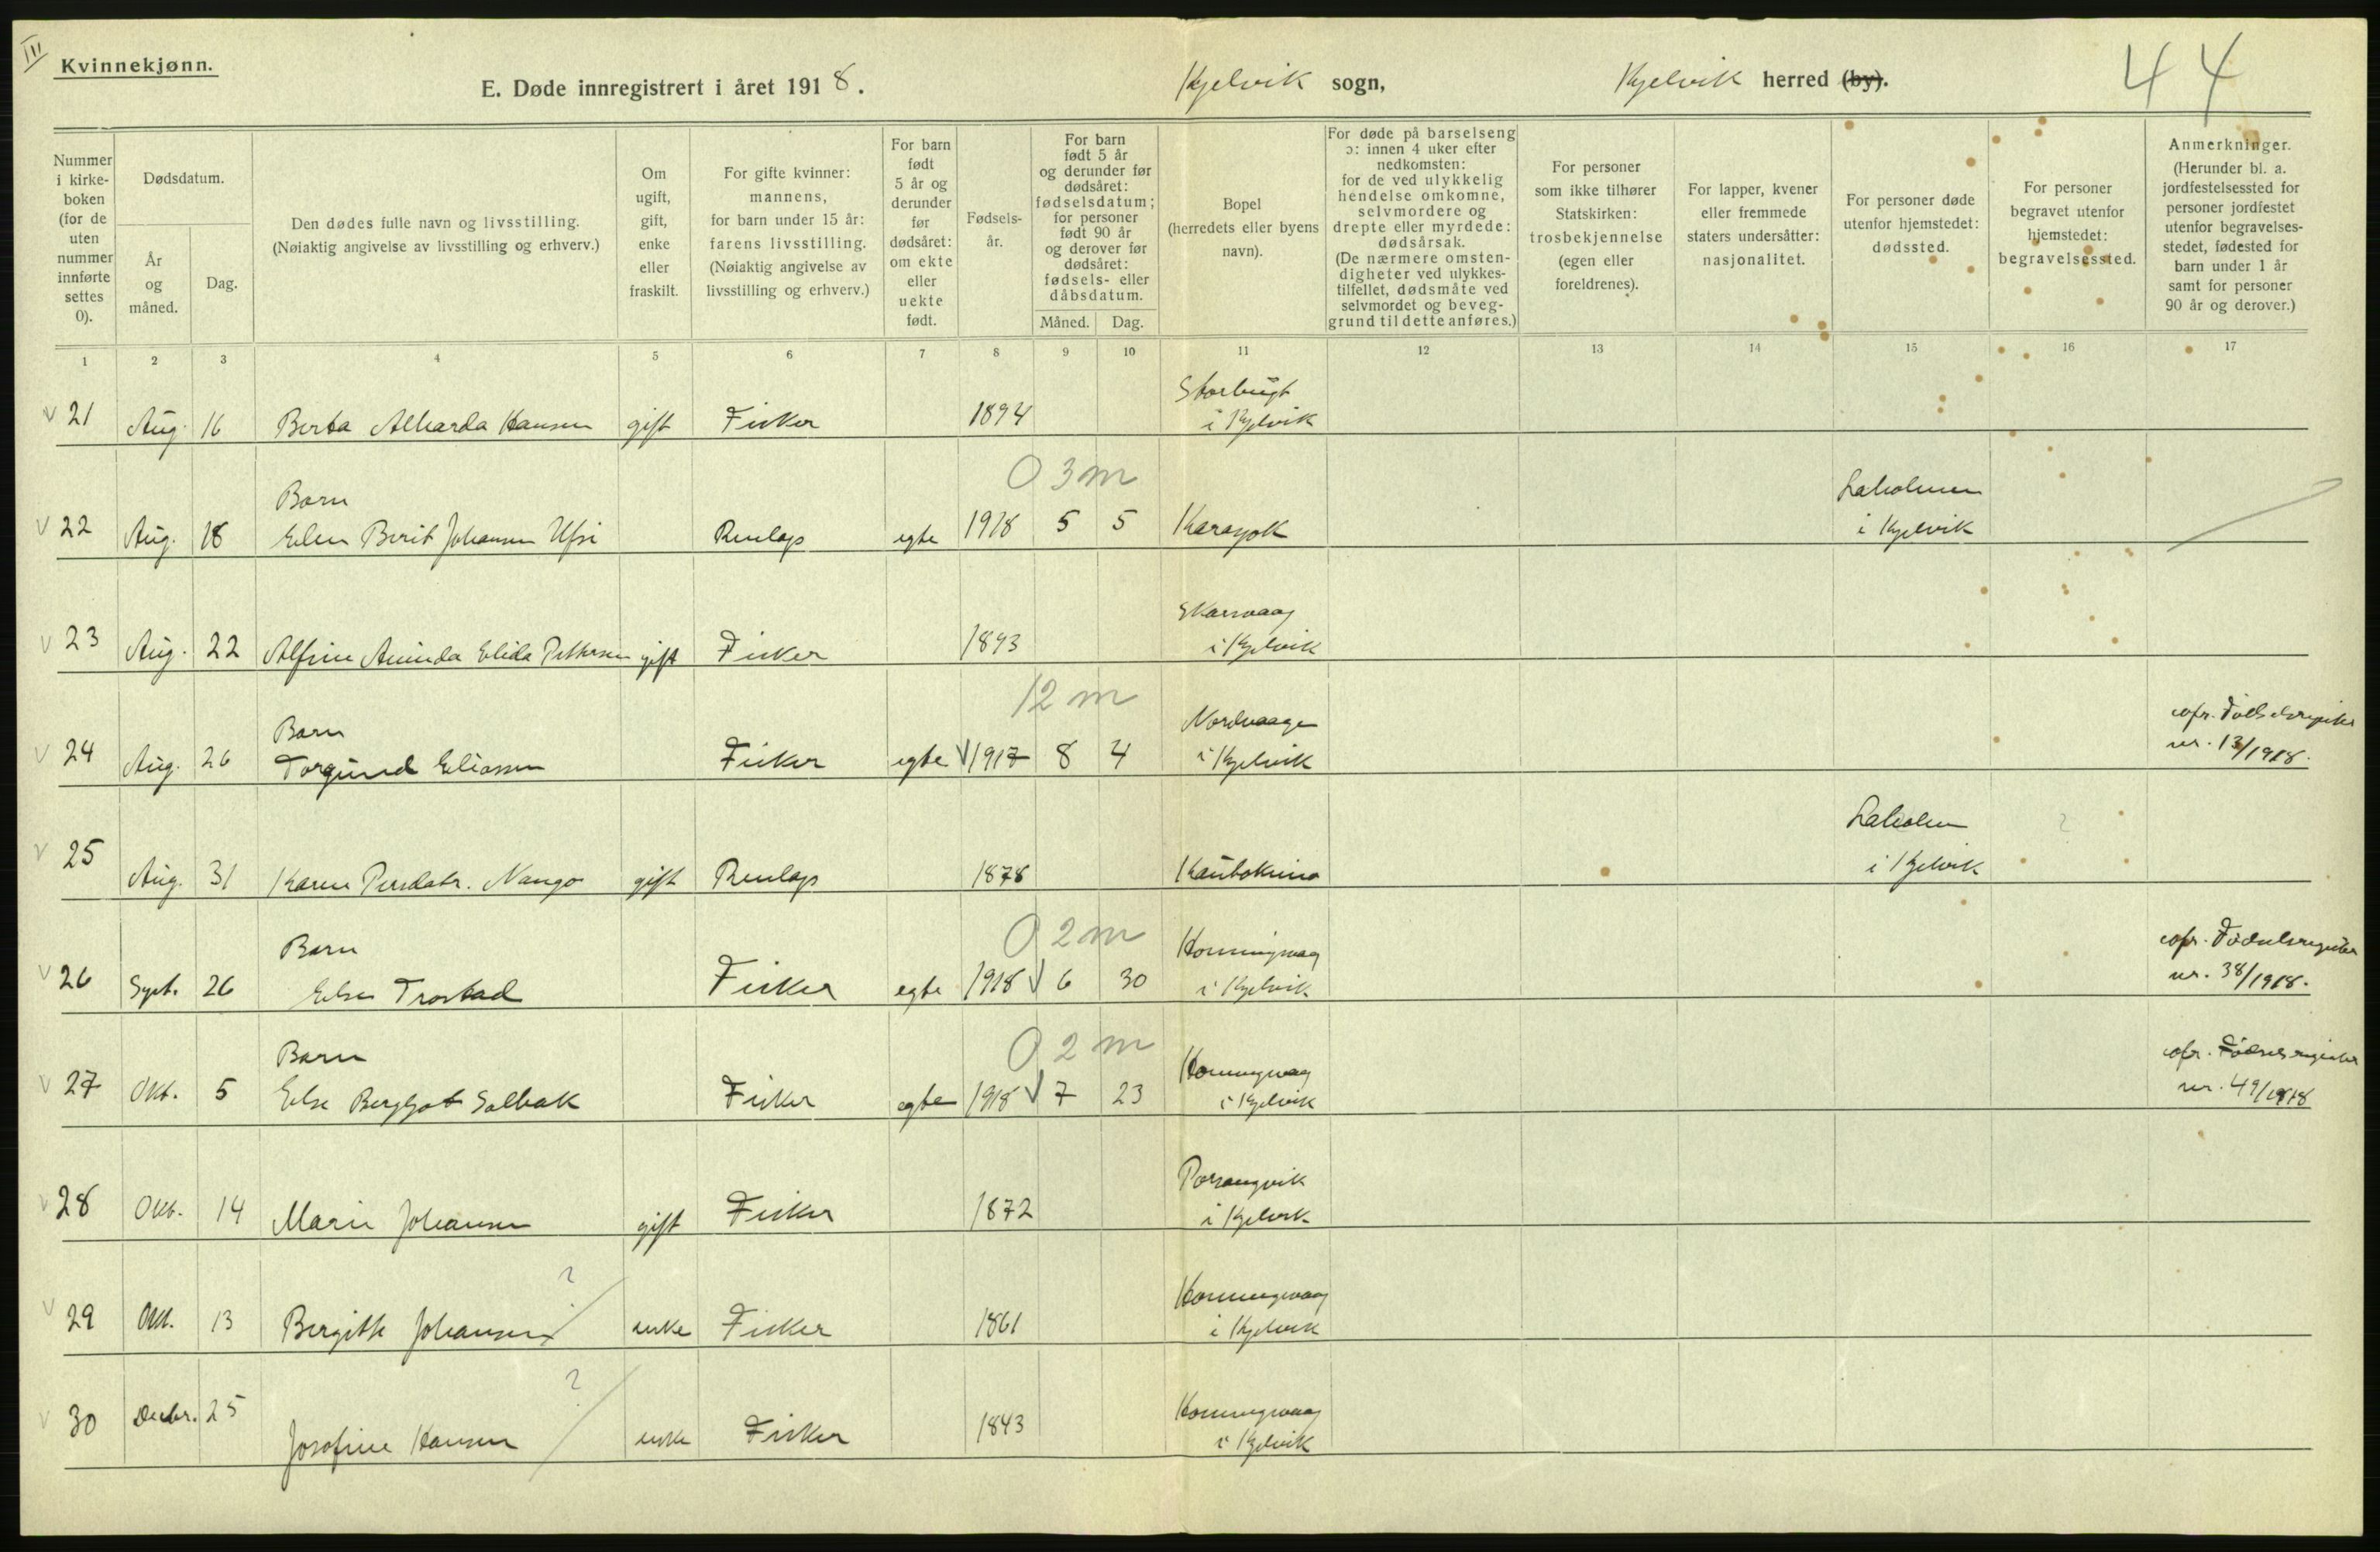 III
Kvinnekjønn.
E. Døde innregistrert i året 1918.
Kjelvik sogn,
Kjelvik herred (by).
44
Nummer i kirke-boken (for de uten nummer innførte settes 0).
Dødsdatum.
År og måned.
Dag.
Den dødes fulle navn og livsstilling.
(Nøiaktig angivelse av livsstilling og erhverv.)
Om ugift, gift, enke eller fraskilt.
For gifte kvinner: mannens, for barn under 15 år: farens livsstilling. (Nøiaktig angivelse av livsstilling og erhverv.)
For barn født 5 år og derunder før dødsåret: om ekte eller uekte født.
Fødsels-år.
For barn født 5 år og derunder før dødsåret: fødselsdatum; for personer født 90 år og derover før dødsåret: fødsels- eller dåbsdatum.
Måned.
Dag.
Bopel (herredets eller byens navn).
For døde på barselseng ɔ: innen 4 uker efter nedkomsten: for de ved ulykkelig hendelse omkomne, selvmordere og drepte eller myrdede: dødsårsak. (De nærmere omsten-digheter ved ulykkes-tilfellet, dødsmåte ved selvmordet og beveg-grund til dette anføres.)
For personer som ikke tilhører Statskirken: trosbekjennelse (egen eller foreldrenes).
For lapper, kvener eller fremmede staters undersåtter: nasjonalitet.
For personer døde utenfor hjemstedet: dødssted.
For personer begravet utenfor hjemstedet: begravelsessted.
Anmerkninger. (Herunder bl. a. jordfestelsessted for personer jordfestet utenfor begravelses-stedet, fødested for barn under 1 år samt for personer 90 år og derover.)
1 2 3 4 5 6 7 8 9 10 11 12 13 14 15 16 17
Storbugt
21 Aug. 16 Berta Alharda Hansen gift Fisker 1894 i Kjelvik
0 3 m
Barn
Laholmen
22 Aug. 18 Elen Berit Johansen Utsi Renlap egte 1918 5 5 Karasjok i Kjelvik
Skarsvaag
23 Aug. 22 Alfine Aminda Elida Pettersen gift Fisker 1893 i Kjelvik
12 m
Barn
Nordvaagen
cofr. Fødselsregister
24 Aug. 26 Torgund Eliassen Fisker egte 1917 8 4 i Kjelvik nr. 13/1918.
Laholm
25 Aug. 31 Karen Persdatr. Nango gift Renlap 1878 Kautokeino i Kjelvik
?
0 2 m
Barn
Honningvaag
cofr. Fødselsregister
26 Sept. 26 Else Trostad Fisker egte 1918 6 30 i Kjelvik nr. 38/1918.
0 2 m
Barn
Honningvaag
cofr. Fødselsregister
27 Okt. 5 Else Bergljot Solbak Fisker egte 1918 7 23 i Kjelvik nr. 49/1918
Porsangvik
28 Okt. 14 Marie Johansen gift Fisker 1872 i Kjelvik
?
Honningvaag
29 Okt. 13 Bergitte Johansen enke Fisker 1861 i Kjelvik
?
Honningvaag
30 Decbr. 25 Josefine Hansen enke Fisker 1843 i Kjelvik